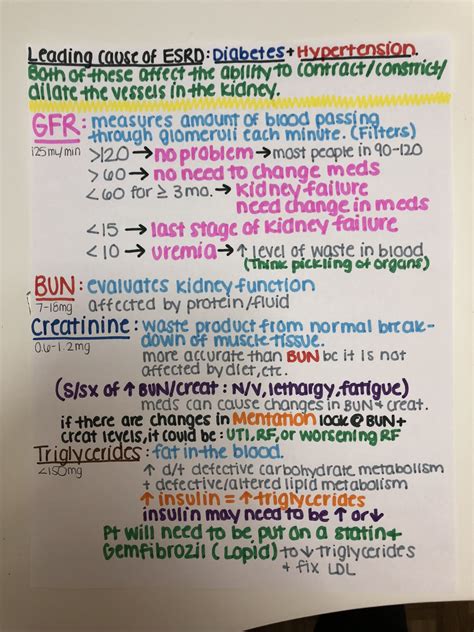 Leading cause of ESRD: Diabetes + Hypertension.
Both of these affect the ability to contract/constrict/
dilate the vessels in the kidney.
GFR: measures amount of blood passing
through glomeruli each minute. (Filters)
125mL/min >120 → no problem → most people in 90-120
>60 → no need to change meds
<60 for ≥ 3mo. → kidney failure
need change in meds
<15 → last stage of kidney failure
<10 → uremia → ↑ level of waste in blood
(Think pickling of organs)
BUN: evaluates kidney function
7-18mg affected by protein/fluid
Creatinine: waste product from normal break-
0.6-1.2mg down of muscle tissue.
more accurate than BUN bc it is not
affected by diet, etc.
(S/sx of ↑ BUN/creat: N/V, lethargy, fatigue)
meds can cause changes in BUN + creat.
if there are changes in Mentation look @ BUN +
creat levels, it could be: UTI, RF, or worsening RF
Triglycerides: fat in the blood.
<150mg ↑ d/t defective carbohydrate metabolism
+ defective/altered lipid metabolism
↑ insulin = ↑ triglycerides
insulin may need to be ↑ or ↓
Pt will need to be put on a statin +
Gemfibrozil (Lopid) to ↓ triglycerides
+ fix LDL